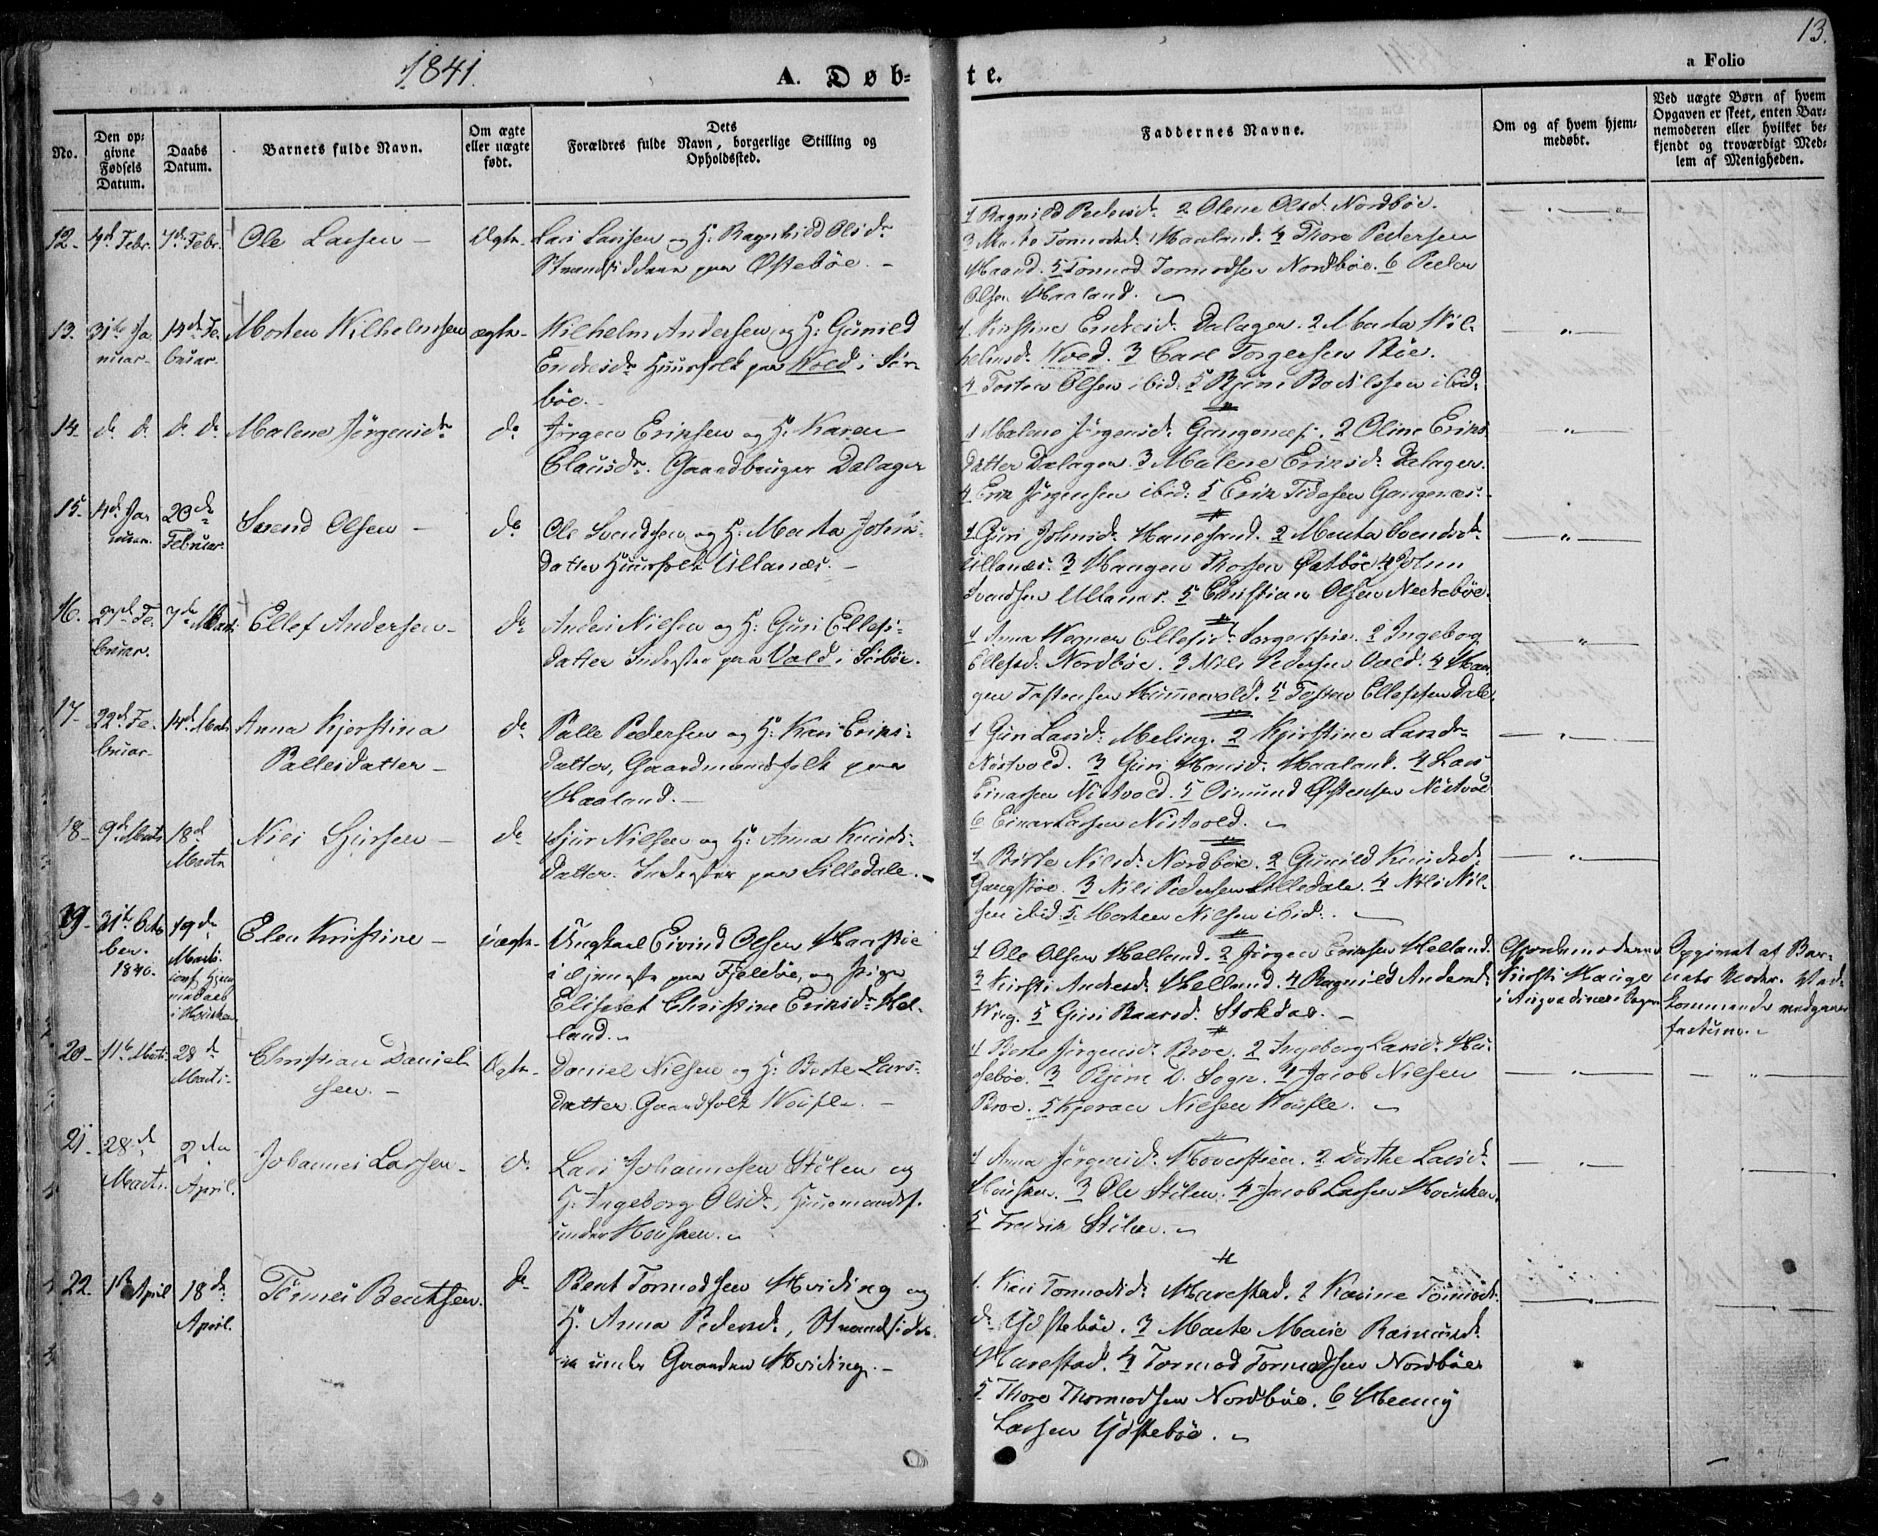 1841.
A. Døb-
te.
13.
a Folio
No.
Den op-
givne
Fødsels
Datum.
Daabs
Datum.
Barnets fulde Navn.
Om ægte
eller uægte
født.
Dets
Forældres fulde Navn, borgerlige Stilling og
Opholdssted.
Faddernes Navne.
Om og af hvem hjem-
medøbt.
Ved uægte Børn af hvem
Opgaven er skeet, enten Bar-
nemoderen eller hvilket be-
kjendt og troværdigt Med-
lem af Menigheden.
12. 4d. Febr. 7de Febr. Ole Larsen – Ægte.
Lars Larssen og H. Ragnhild Olsdr
Strandsiddere paa Østebøe. –
1 Ragnild Pedersd. 2 Olene Olsd. Nordbøe.
3 Marta Tormodsd. Haaland. 4 Thore Pedersen
5 Tormod Tormodsen Nordbøe. 6 Peder
Olsen Haaland.
13. 31te Ja-
nuar. 14de Fe-
bruar. Morten Wilhelmsen ægte.
Wilhelm Andersen og H. Gunild
Endresdr Huusfolk paa Vold i Sør-
bøe. –
1 Kirstine Endresd. Dalager. 2 Marta Wil-
helmsd. Voed. 3 Carl Torgersen Bøe.
4 Tosten Olsen ibid. 5 Bjørn Bodilssen ibid.
14. d. d. d. d. Malene Jørgensdr do
Jørgen Eriksen og H. Karen
Clausdr. Gaardbruger Dalager
1 Malene Jørgensd. Gangenæs. 2 Oline Eriks-
datter Dalager. 3 Malene Eriksd. Dalager.
4 Erik Jørgensen ibid. 5 Erik Gangenæs.
15. 4d. Ja-
nuar. 20de
Februar. Svend Olsen – do
Ole Svendsen og H. Marta Johns-
datter Huusfolk Ullanæs. –
1 Guri Johnsd. Hanesand. 2 Marta Svendsd.
Ullanæs. 3 Haagen Thorsen Østbøe. 4 John
Svendsen Ullanæs. 5 Christian Olsen Nedrebøe.
16. 27de Fe-
bruar. 7de Marts Ellef Andersen – do
Anders Nielsen og H. Guri Ellefs-
datter Inderster paa Vald i Sørbøe.
1 Anna Wegner Ellefsd. 2 Ingeborg
Ellefsd. Nordbøe. 3 Nils Pedersen Vald. 4 Haa-
gen Tostensen Hummervold. 5 Tosten Ellefsen Dale.
17. 22d. Fe-
bruar. 14d. Marts Anna Kjerstina
Pallesdatter – do
Palle Pedersen og H. Kari Eriks-
datter, Gaardmandsfolk paa
Haaland. –
1 Guri Larsd. Meling. 2 Kjirstine Larsdr
Nistvold. 3 Guri Hansd. Haaland. 4 Lars
Einarsen Nistvold. 5 Osmund Østensen Nistvold
6 Einar Larsen Nistvold.
18. 9d. Marts 18d
Marts Niels Sjursen – do
Sjur Nilsen og H. Anna Knuds-
datter. Inderster paa Lilledale. –
1 Birte Nilsd. Nordbøe. 2 Gunild Knudsd.
Gangstøe. 3 Nils Pedersen Lilledale. 4 Nils Nil-
sen ibid. 5 Morten Nilsen ibid.
19. 31te Octo-
ber.
1840. 19de
Marts
Elen Kristine – uægte.
Ungkarl Eivind Olsen Harestøe
i tjeneste paa Fjeldbøe, og Pige
Elisabet Christine Eriksdr Hel-
land.
1 Ole Olsen Helland. 2 Jørgen Eriksen Helland.
3 Kirsti Andersd. Helland. 4 Ragnild Andersd.
Wiig. 5 Guri Baarsd. Stokdal. –
Gjordemoderen
Kirsti Hauge
Opgivet af Bar-
nets Moder.
20. 11te Marts 28d
Marts. Christian Daniel-
sen. – Ægte.
Daniel Nielsen og H. Berte Lars-
datter. Gaardfolk Voustle. –
1 Berte Jørgensd. Broe. 2 Ingeborg Larsd. Hu-
sebøe. 3 Bjørn D. Sogn. 4 Jacob Nielsen
Broe. 5 Kjeran Nielsen Voustle.
21. 28d
Marts. 2den
April. Johannes Larsen. do.
Lars Johannesen Stølen og
H. Ingeborg Olsd., Huusmandsf.
under Housken.
1 Anna Jørgensd. Hovestøen. 2 Dorthe Larsd.
Housken. 3 Ole Stølen. 4 Jacob Larsen Housken.
5 Fredrik Stølen.
22. 1ste April 18de
April. Tønnes Bentsen. do
Bent Tormodsen Hviding og
H. Anna Pedersd., Strandsidde-
re under Gaarden Hviding. –
1. Kari Tormodsd. Harestad. 2 Karine Tormods-
d. Ydstebøe. 3 Marte Marie Rasmusd.
Harestad. 4 Tormod Tormodsen Nordbøe
5 Thore Thormodsen Nordbøe. 6 Henny
Larsen Ydstebøe.